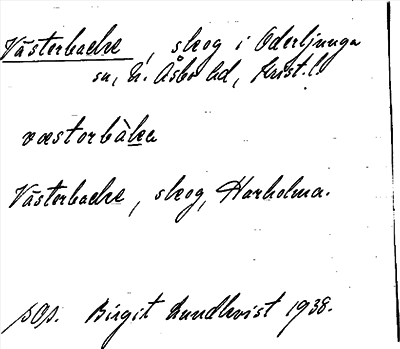 Västerbacke, skog i Oderljunga
sn, N. Åsbo hd, Krist. l.
væstorbàka
Västerbacke, skog, Harholma.
sop. Birgit Lundkvist 1938.